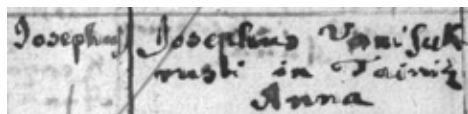 Josephus Josephus Vanisek
rusti in Tainiz
Anna